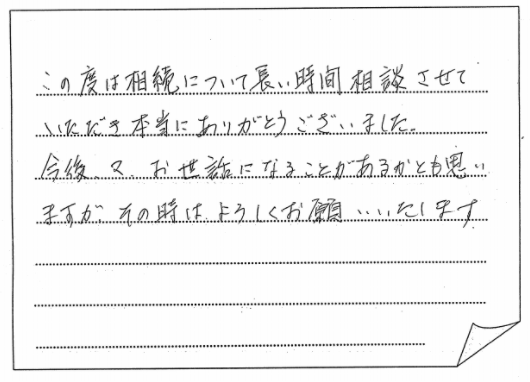 この度は相続について長い時間相談させて
いただき本当にありがとうございました。
今後、又、お世話になることがあるかとも思い
ますが、その時は、よろしくお願いいたします